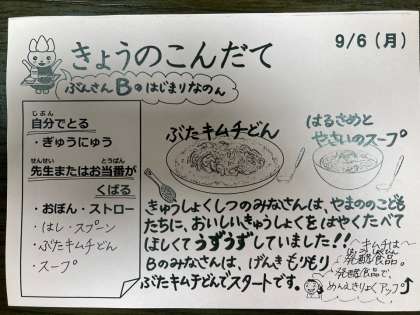 きょうのこんだて
9/6(月)
ぶんさんBのはじまりなのん
じぶん
自分でとる
・ぎゅうにゅう
せんせい とうばん
先生またはお当番が
くばる
・おぼん・ストロー
・はし・スプーン
・ぶたキムチどん
・スープ
ぶたキムチどん
はるさめと
やさいのスープ
きゅうしょくしつのみなさんは、やまのこども
たちに、おいしいきゅうしょくをはやくたべて
ほしくてうずうずしていました!!
Bのみなさんは、げんきもりもり
ぶたキムチどんでスタートです。
キムチは
発酵食品。
発酵食品で、
めんえきりょくアップ